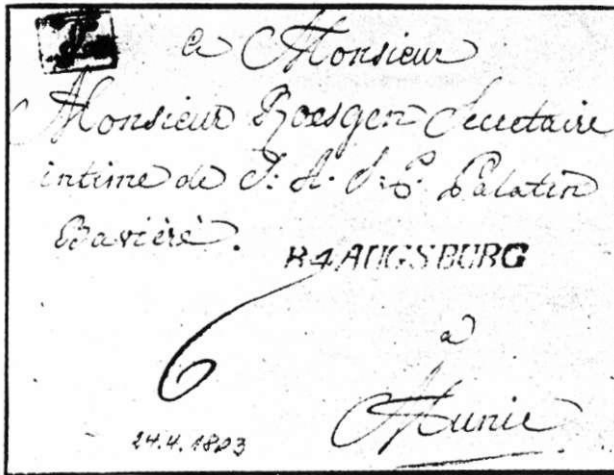 a Monsieur
Monsieur Roesgen Secretaire
intime de S. A. S. E. Palatin
Baviére.
R4 AUGSBURG
6
à
Munic
24.4.1803